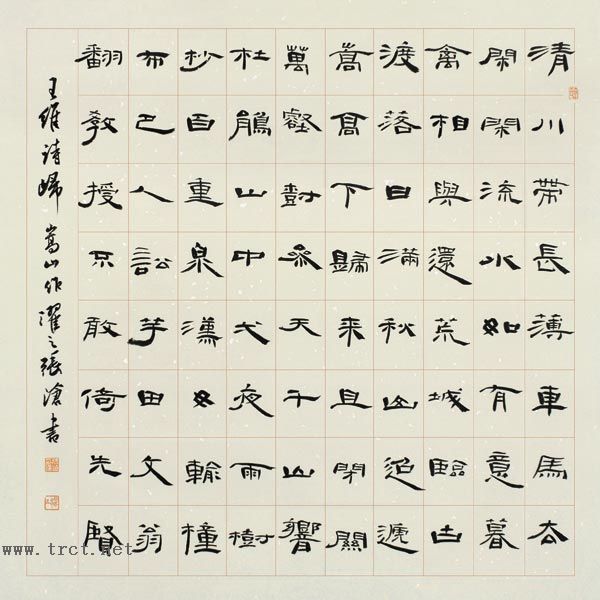 清川帶長薄車馬去
閑閑流水如有意暮
禽相與還荒城臨古
渡落日滿秋山迢遞
嵩高下歸来且閉關
萬壑樹參天千山響
杜鵑山中弌夜雨樹
杪百重泉漢女輸橦
布巴人訟芋田文翁
翻教授不敢倚先賢
王維詩歸嵩山作濯之張滄書
www.trct.net